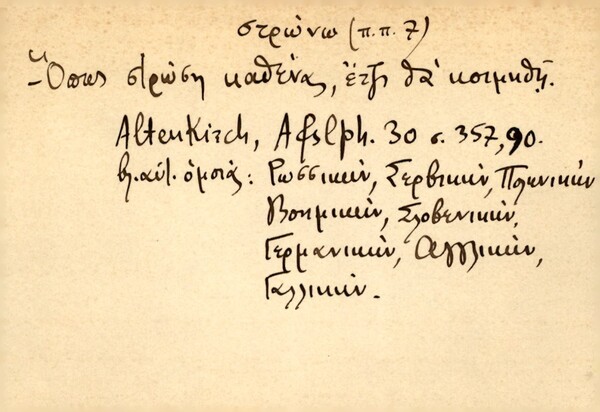 στρώνω (π.π. 7)
- Ὅπως στρώσῃ καθένας, ἔτσι θὰ κοιμηθῇ.
Altenkirch, Afslph. 30 σ. 357, 90.
βλ. αὐτ. ὁμοιά: Ρωσσικὴν, Σερβικὴν, Πολωνικὴν
Βοημικὴν, Σλοβενικὴν,
Γερμανικὴν, Ἀγγλικὴν,
Γαλλικὴν.